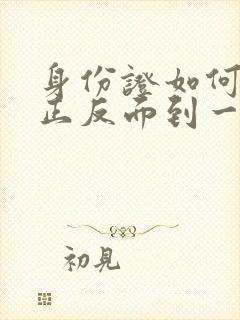 身份證如何
正反面到一
初見